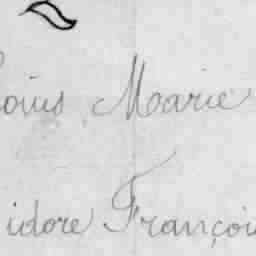 ouis Marie
idore Françoi